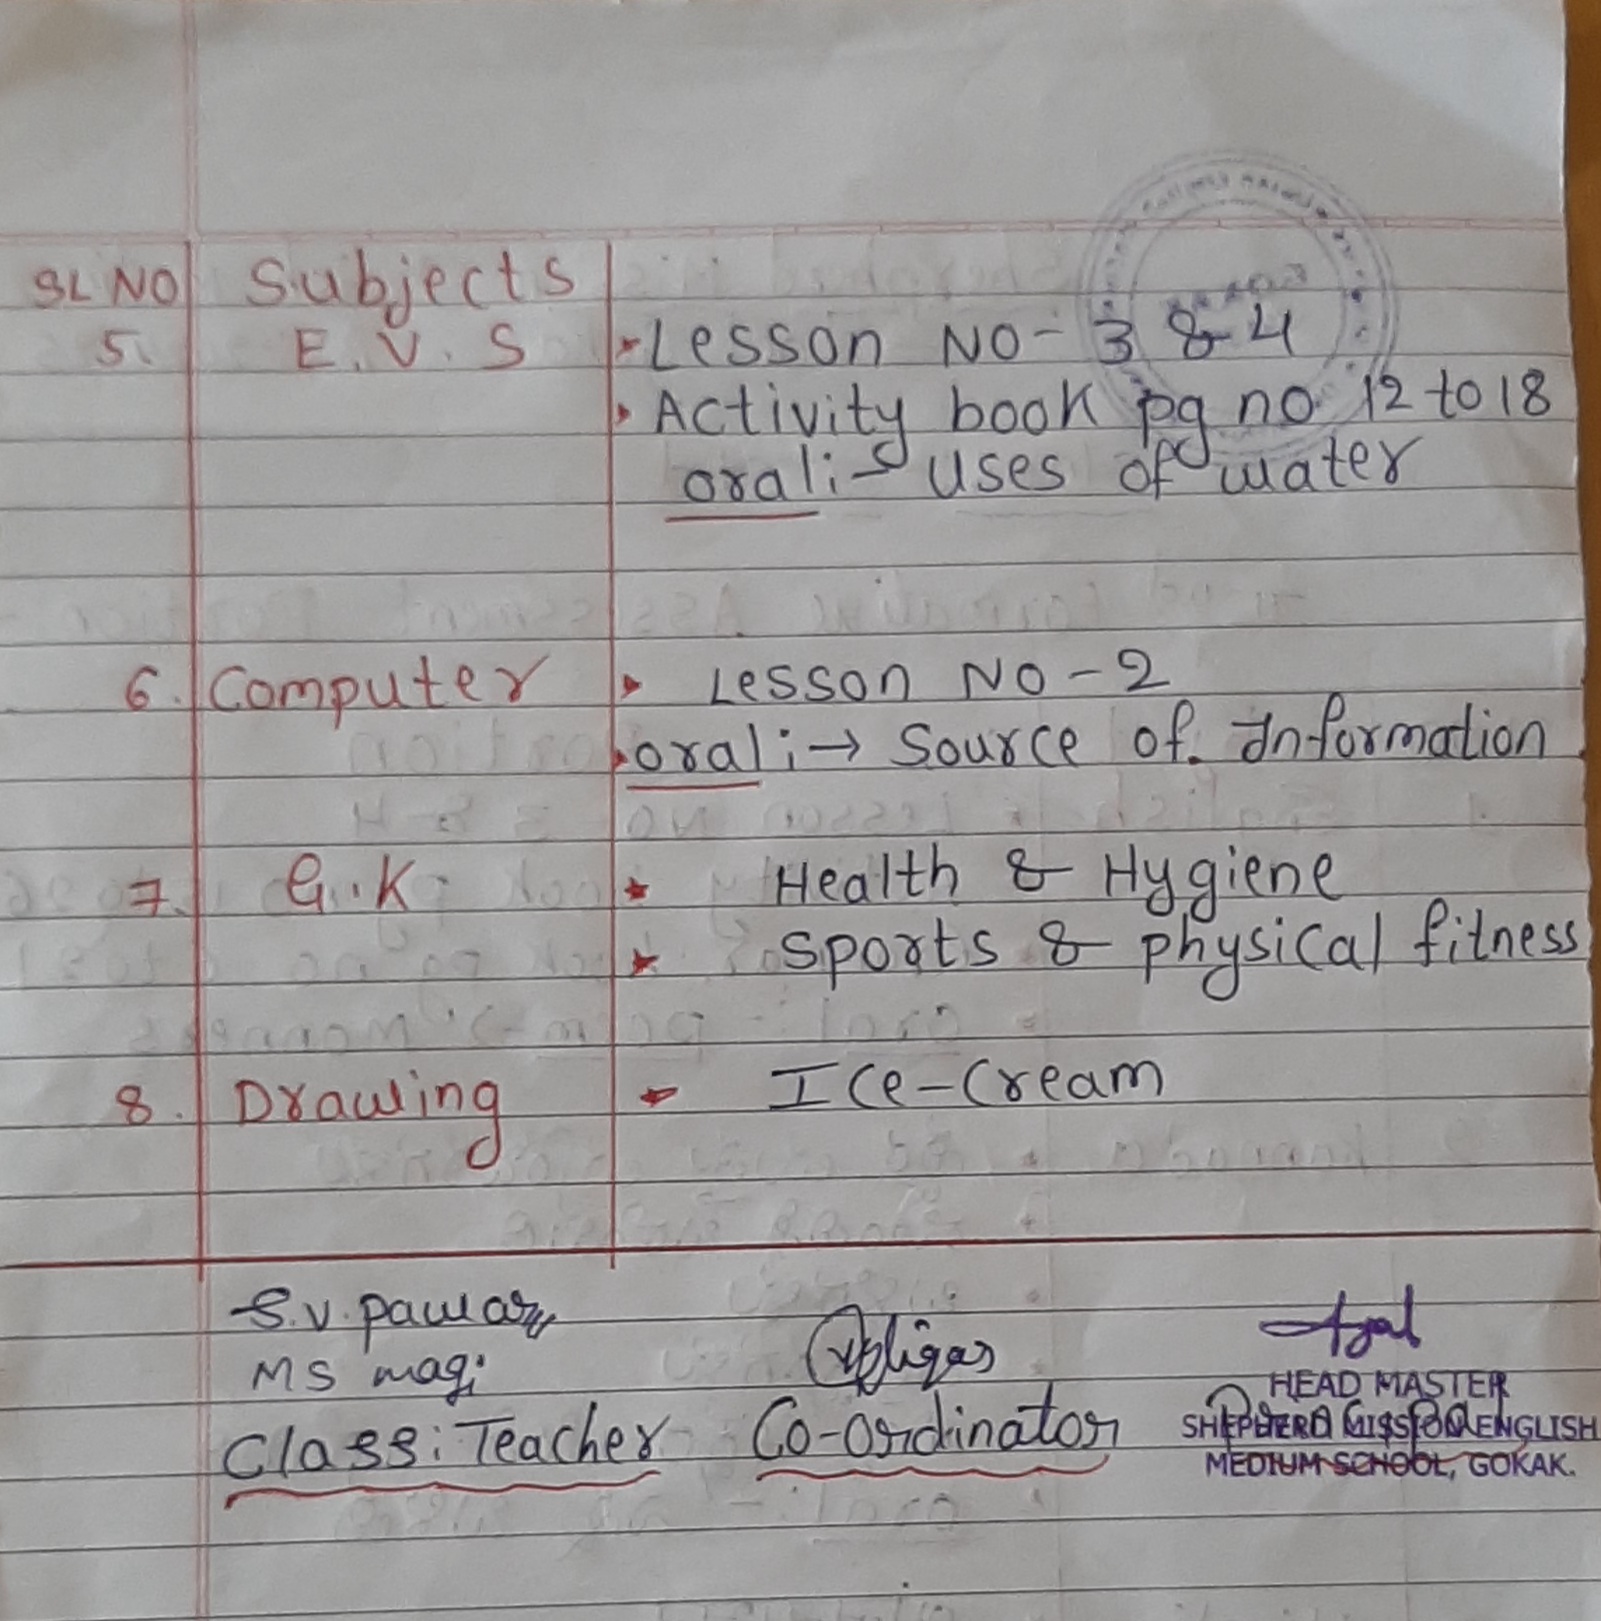 SL NO Subjects
5. E.V.S Lesson NO - 3 & 4
Activity book pg no 12 to 18
oral:- uses of water
6. Computer Lesson NO - 2
oral:→ Source of Information
7. G.K Health & Hygiene
Sports & physical fitness
8. Drawing - Ice-Cream
S.V. pawar
MS magi
Class: Teacher Co-ordinator
HEAD MASTER
SHEPHERD MISSION ENGLISH
MEDIUM SCHOOL, GOKAK.